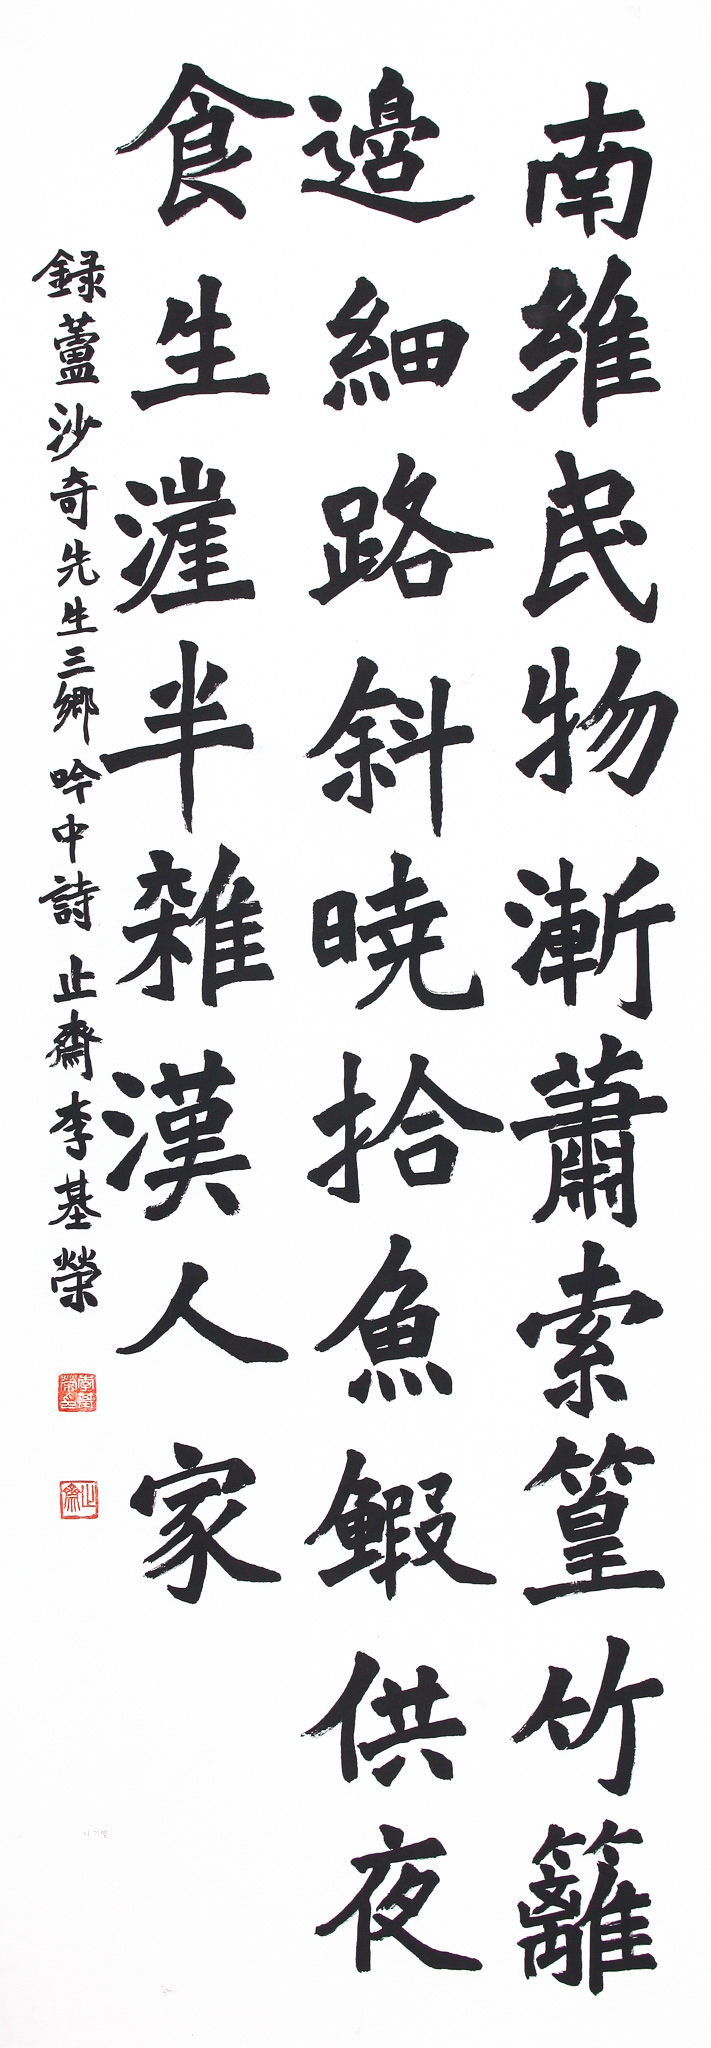 南維民物漸蕭索篁竹籬
邊細路斜曉拾魚鰕供夜
食生漄半雜漢人家
錄蘆沙奇先生三鄉吟中詩 止齋李基榮